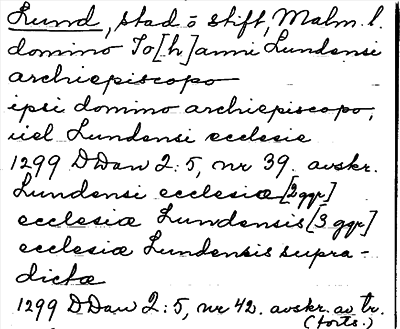 Lund, stad o stift, Malm. l.
domino Io[h]anni Lundensi
archiepiscopo
ipsi domino archiepiscopo,
uel Lundensi ecclesie
1299 DDan 2:5, nr 39. avskr.
Lundensi ecclesiæ [2 ggr]
ecclesiæ Lundensis [3 ggr]
ecclesiæ Lundensis supra-
dictæ
1299 DDan 2:5, nr 42. avskr. av tr.
(forts.)